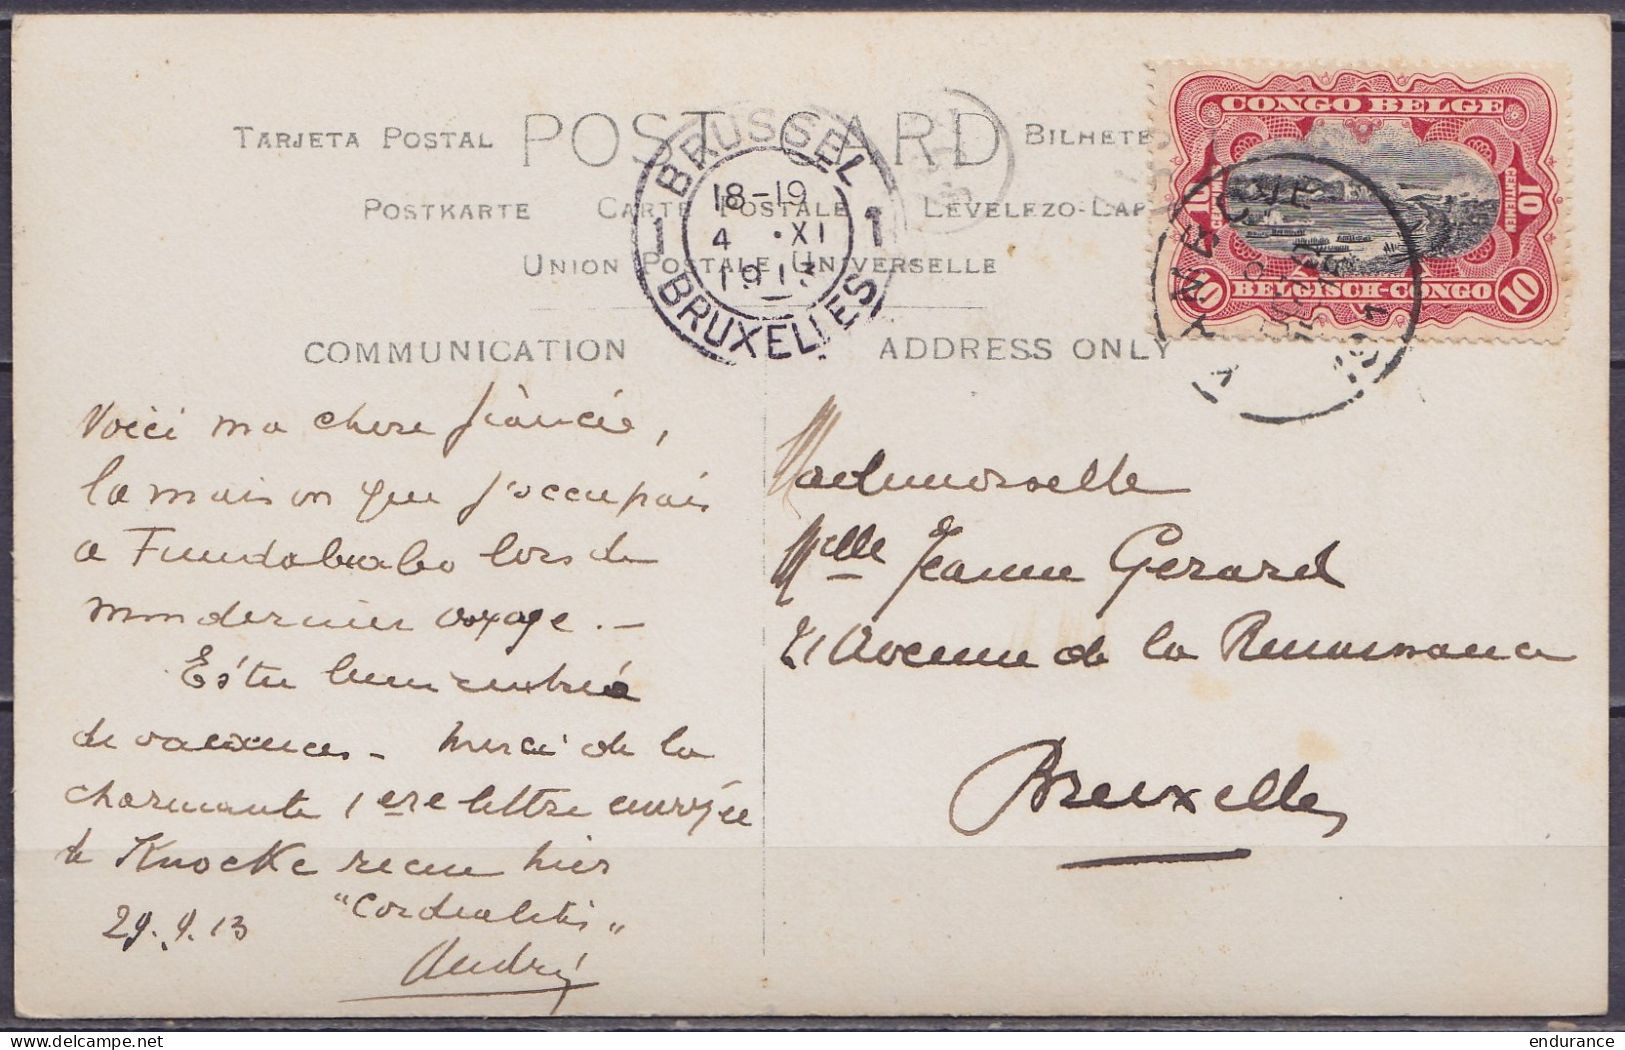 TARJETA POSTAL POST CARD BILHETE
POSTKARTE CARTE POSTALE LEVELEZO-LAP
UNION POSTALE UNIVERSELLE
COMMUNICATION
ADDRESS ONLY
BRUSSEL
1 18-19 1
4 · XI
1913
BRUXELLES
CONGO BELGE
10 CENTIMES
10 CENTIEMEN
10 BELGISCH-CONGO 10
Voici ma chere fiancée,
la maison que j'occupais
a Fundabiabo lors de
mon dernier voyage. –
Es tu bien rentrée
de vacances – Merci de la
charmante 1ere lettre envoyée
de Knocke recue hier
29.9.13 "Cordialités"
André
Mademoiselle
Melle Jeanne Gerard
21 Avenue de la Renaissance
Bruxelles
endurance